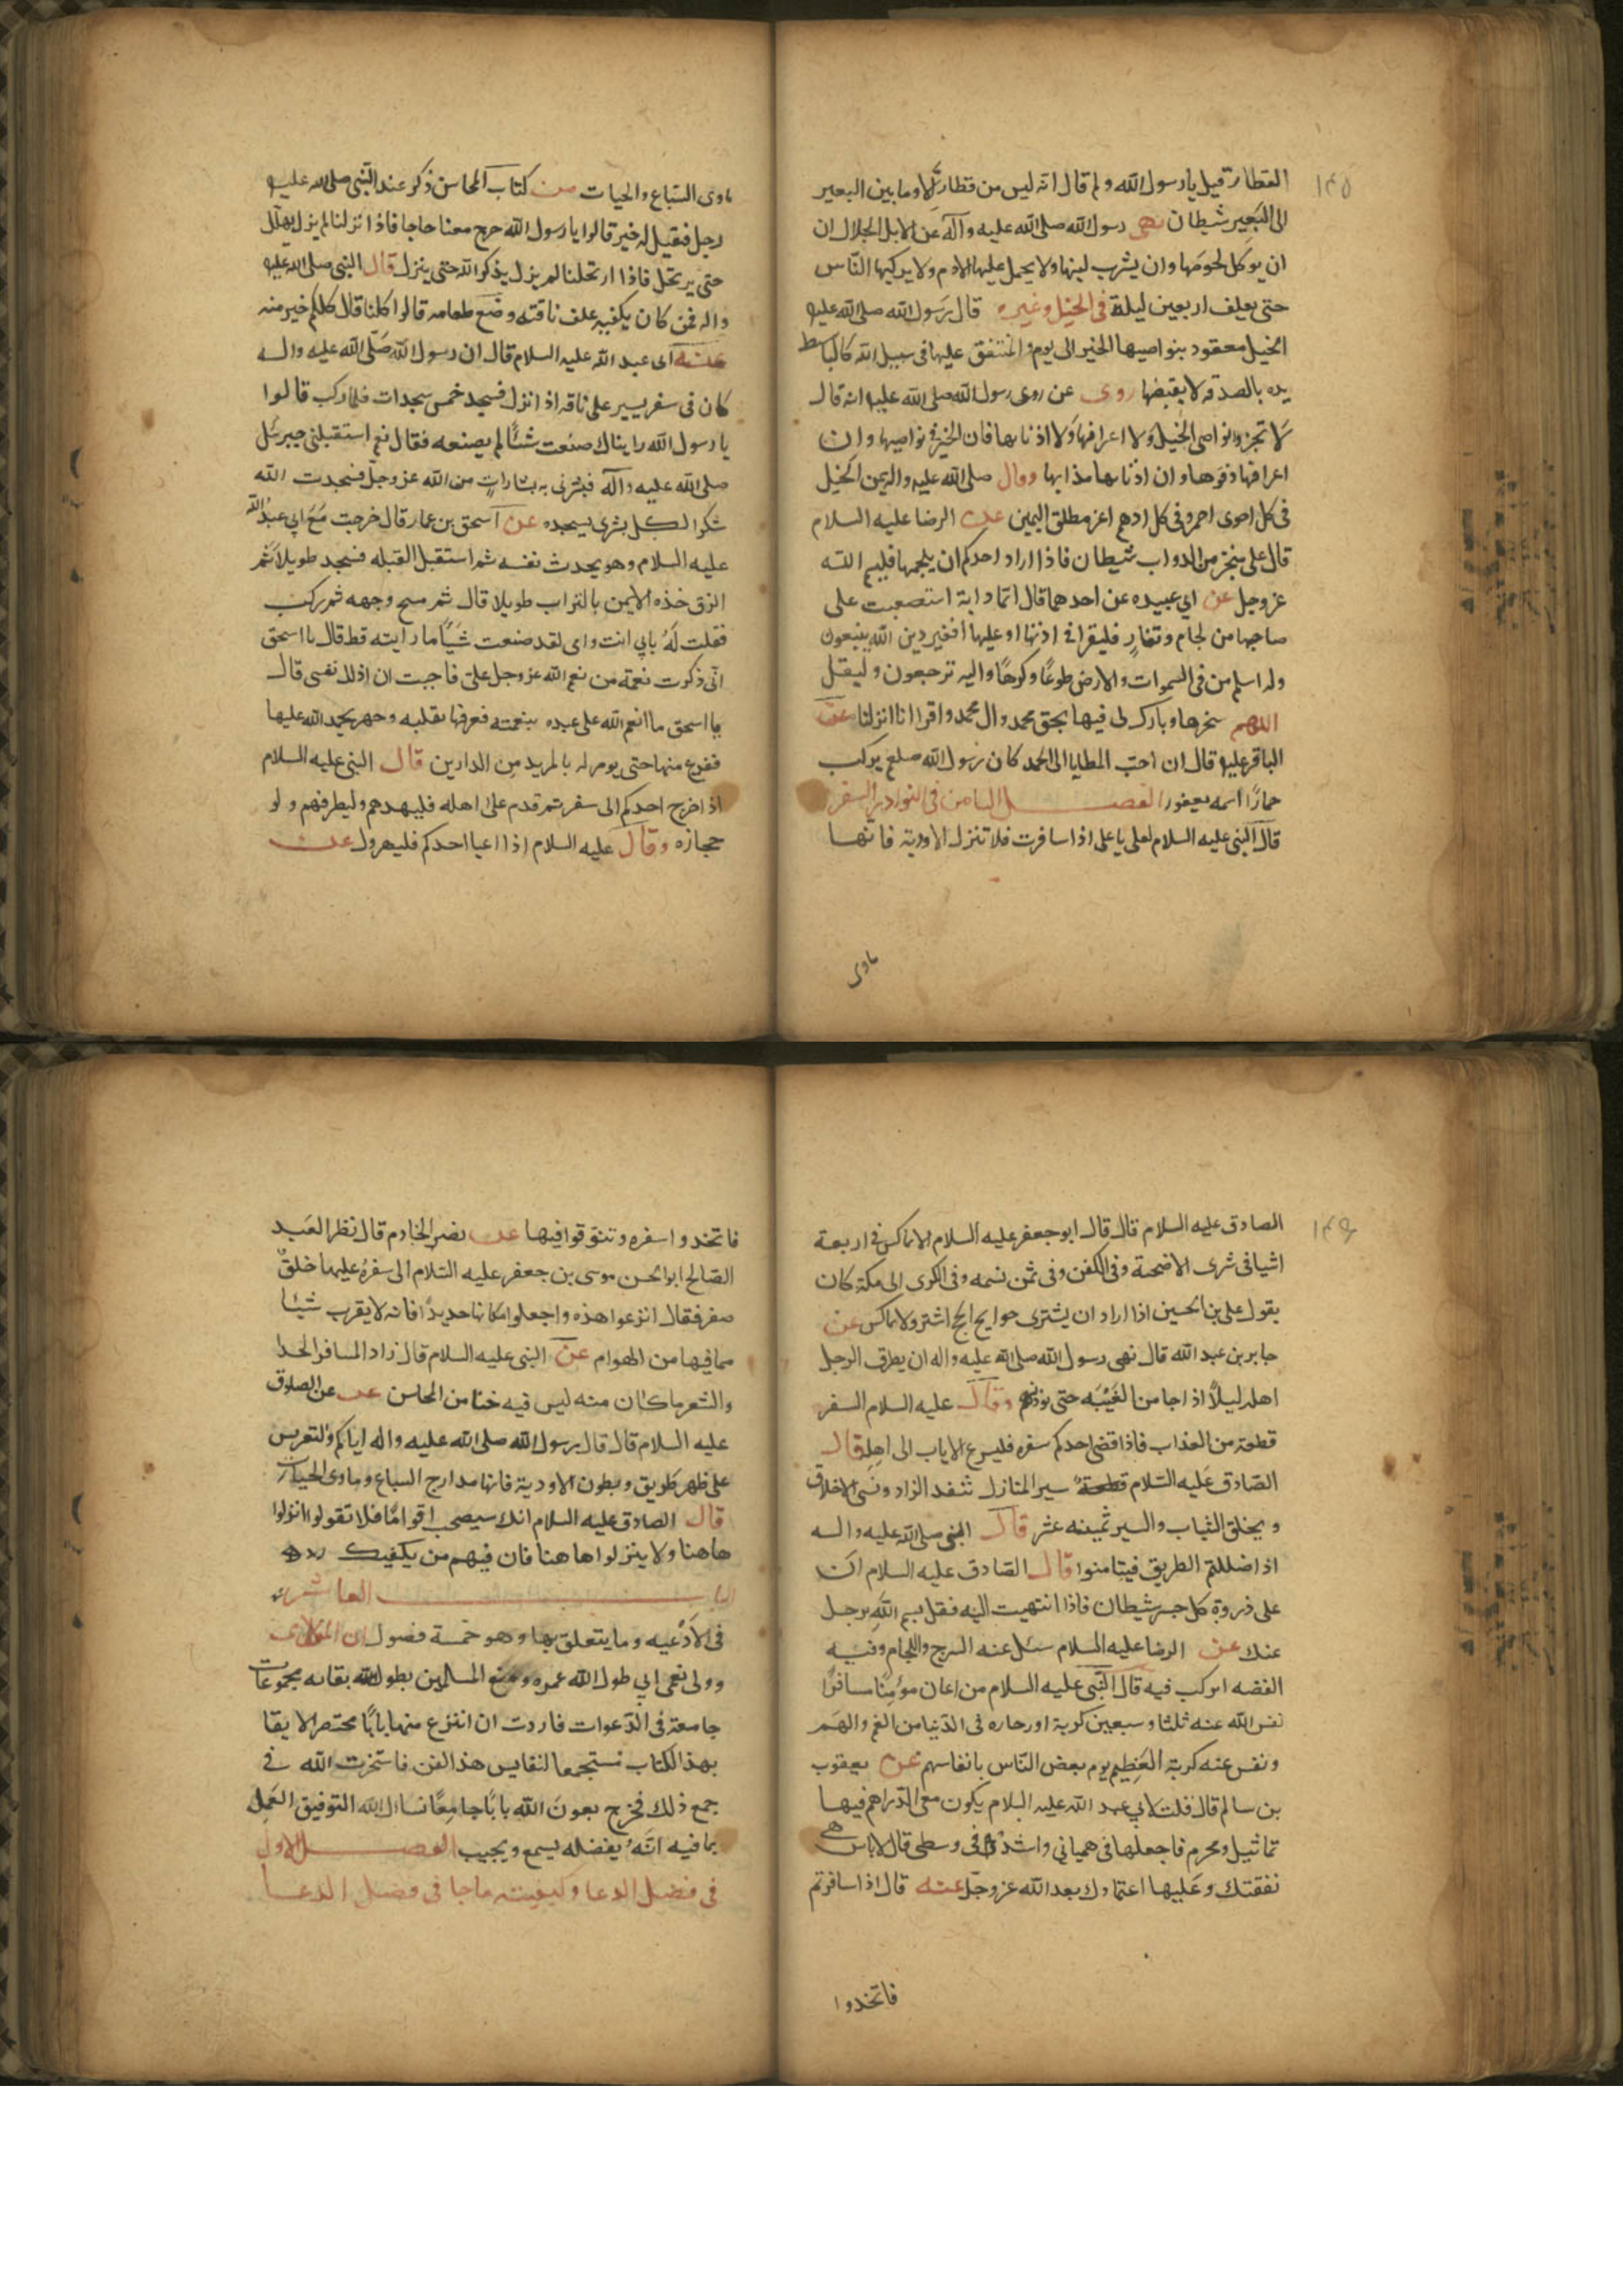 ١٤٥
القطارة قيل يا رسول الله ولم قال انه ليس من قطار الا وما بين البعير
الى البعير شيطان نهى رسول الله صلى الله عليه وآله عن الابل الجلال ان
ان يوكل لحومها وان يشرب لبنها ولا يحمل عليها الادم ولا يركبها الناس
حتى يعلف اربعين ليلة في الخيل وغيره قال رسول الله صلى الله عليه
الخيل معقود بنواصيها الخير الى يوم والمنفق عليها في سبيل الله كالباسط
يده بالصدقه لا يقبضها روى عن روى رسول الله صلى الله عليه انه قال
لا تجزوا نواصي الخيل ولا اعرافها ولا اذنابها فان الخير في نواصيها وان
اعرافها دفوها وان اذنابها مذابها وقال صلى الله عليه واله يمن الخيل
في كل احوى احمر وفي كل ادهم اغر مطلق اليمين عن الرضا عليه السلام
قال على منخر من الدواب شيطان فاذا اراد احدكم ان يلجمها فليسم الله
عز وجل عن ابي عبيده عن احدهما قال ايما دابة استصعبت على
صاحبها من لجام ونفار فليقرا في اذنها او عليها افغير دين الله يبغون
وله اسلم من في السموات والارض طوعا وكرها واليه ترجعون وليقل
اللهم سخرها وبارك لى فيها بحق محمد وال محمد واقرا انا انزلنا عن
الباقر عليه قال ان احب المطايا الى الحمر كان رسول الله صلعم يركب
حمارا اسمه يعفور الفصل الثامن في النوادر السفر
قال النبي عليه السلام لعلي يا علي اذا سافرت فلا تنزل الاودية فانها
ماوى
ماوى السباع والحيات من كتاب المحاسن ذكر عند النبي صلى الله عليه
رجل فقيل له خير قالوا يا رسول الله خرج معنا حاجا فاذا نزلنا لم يزل يهلل
حتى يرتحل فاذا ارتحلنا لم يزل يذكر الله حتى ينزل قال النبي صلى الله عليه
واله فمن كان يكفيه علف ناقته وضع طعامه قالوا كلنا قال كلكم خير منه
عنه اى عبد الله عليه السلام قال ان رسول الله صلى الله عليه واله
كان في سفر يسير على ناقه اذ انزل فسجد خمس سجدات فلما ركب قالوا
يا رسول الله رايناك صنعت شئا لم يصنعه فقال نعم استقبلني جبرئل
صلى الله عليه وآله فبشرني ببشارات من الله عز وجل فسجدت الله
شكرا لكل بشرى يسجده عن اسحق بن عمار قال خرجت مع ابي عبد الله
عليه السلام وهو يحدث نفسه ثم استقبل القبله فسجد طويلا ثم
الزق خذه الايمن بالتراب طويلا قال ثم مسح وجهه ثم ركب
فقلت له بابي انت وامي لقد صنعت شيئا ما رايته قط قال يا اسحق
اني ذكرت نعمة من نعم الله عز وجل على فاحببت ان اذلل نفسي قال
يا اسحق ما انعم الله على عبده بنعمته فعرفها بقلبه وجهر بحمد الله عليها
ففرغ منها حتى يومر له بالمريد من الدارين قال النبي عليه السلام
اذا خرج احدكم الى سفر ثم قدم على اهله فليهدهم وليطرفهم ولو
حجازه وقال عليه السلام اذا اعيا احدكم فليهرول عن
١٤٦
الصادق عليه السلام قال قال ابو جعفر عليه السلام لا تماكس في اربعة
اشيا في شرى الاضحية وفي الكفن وفي ثمن نسمه وفي الكرى الى مكة كان
يقول علي بن الحسين اذا اراد ان يشترى حوايج الحج اشتر ولا تماكس عن
جابر بن عبد الله قال نهى رسول الله صلى الله عليه واله ان يطرق الرجل
اهله ليلا اذا جا من الغيبه حتى يوذنهم وقال عليه السلام السفر
قطعة من العذاب فاذا قضى احدكم سفره فليسرع الاياب الى اهله قال
الصادق عليه السلام سير المنازل تنفد الزاد وتسي الاخلاق
ويخلق الثياب والسير ثمينه عشر قال النبي صلى الله عليه واله
اذا ضللتم الطريق فتيامنوا قال الصادق عليه السلام ان
على ذروة كل جسر شيطان فاذا انتهيت اليه فقل بسم الله يرحل
عنك عن الرضا عليه السلام سئل عنه السرج واللجام وفيه
الفضه اتركب فيه قال النبي عليه السلام من اعان مؤمنا مسافرا
نفس الله عنه ثلثا وسبعين كربة واجاره في الدنيا من الغم والهم
ونفس عنه كربة العظيم يوم بعض الناس بانفاسهم عن يعقوب
بن سالم قال قلت لابي عبد الله عليه السلام يكون معى الدراهم فيها
تماثيل ومحرم فاجعلها في هميانى واشده في وسطى قال لا باس هي
نفقتك وعليها اعتمادك بعد الله عز وجل عنه قال اذا سافرتم
فاتخذوا
فاتخذوا سفره وتنوقوا فيها عن نصر الخادم قال نظر العبد
الصالح ابو الحسن موسى بن جعفر عليه السلام الى سفره عليها خلق
صفر فقال انزعوا هذه واجعلوا مكانها حديدا فانه لا يقرب شيئا
مما فيها من الهوام عن النبي عليه السلام قال زاد المسافر الحدا
والشعر ما كان منه ليس فيه خنا من المحاسن عن الصادق
عليه السلام قال قال رسول الله صلى الله عليه واله اياكم والتعريس
على ظهر طريق وبطون الاودية فانها مدارج السباع وماوى الحيات
قال الصادق عليه السلام انك سيصحب اقواما فلا تقولوا انزلوا
هاهنا ولا ينزلوا هاهنا فان فيهم من يكفيك
الباب العاشر
في الادعيه وما يتعلق بها وهو خمسة فصول ان المولاى
وولى نعمى ابي طول الله عمره المسلمين بطول الله بقاه مجموعات
جامعة في الدعوات فاردت ان انتزع منها بابا مختصرا لا يقا
بهذا الكتاب مستجمعا لنفايس هذا الفن فاستخرت الله في
جمع ذلك فخرج بعون الله بابا جامعا نسال الله التوفيق العمل
بما فيه انه بفضله يسمع ويجيب الفصل الاول
في فضل الدعا وكيفيته ما جا في فضل الدعا